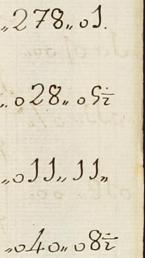 „278„01.
„028„05½
„011„11„
„040„08½